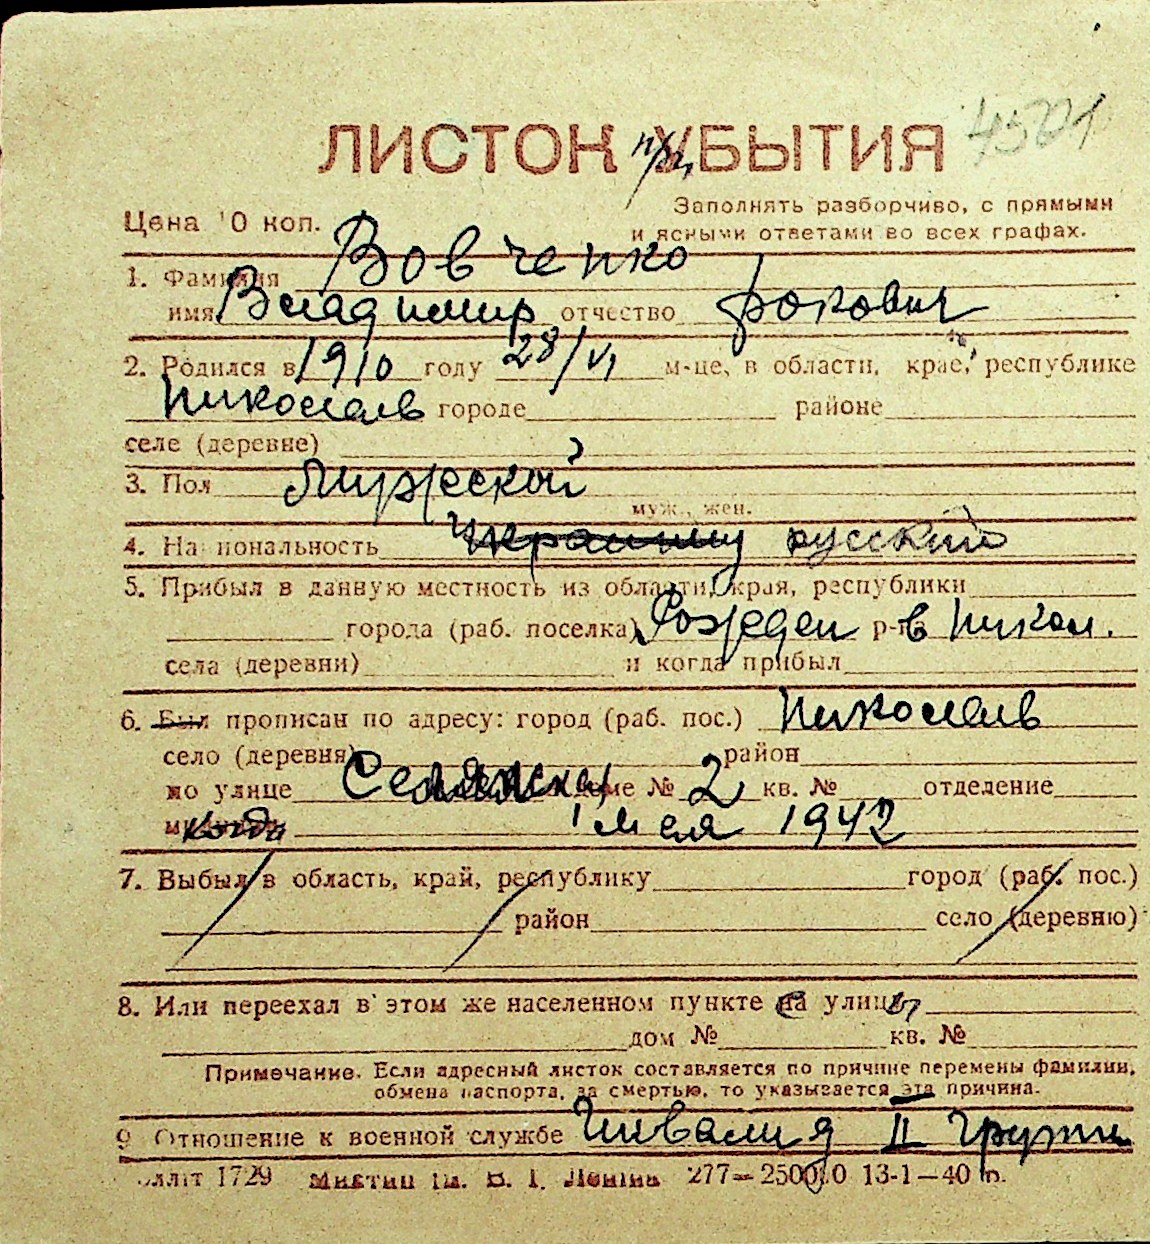 4521
ЛИСТОК УБЫТИЯ
Цена 10 коп.
Заполнять разборчиво, с прямыми
и ясными ответами во всех графах.
1. Фамилия Вовченко
имя Владимир отчество Фокович
2. Родился в 1910 году 28/VI м-це, в области, крае, республике
Николаев городе районе
селе (деревне)
3. Пол Мужеской
муж., жен.
4. Национальность русский
5. Прибыл в данную местность из области, края, республики
города (раб. поселка) р-на в Никол.
села (деревни) и когда прибыл
6. Был прописан по адресу: город (раб. пос.) Николаев
село (деревня) район
по улице доме № 2 кв. № отделение
когда 1 Мая 1942
7. Выбыл в область, край, республику город (раб. пос.)
район село (деревню)
8. Или переехал в этом же населенном пункте с улицы
дом № кв. №
Примечание. Если адресный листок составляется по причине перемены фамилии,
обмена паспорта, за смертью, то указывается эта причина.
9 Отношение к военной службе Инвалид II групы
1729 им. В. І. Леніна 277—25000 13-1—40 р.